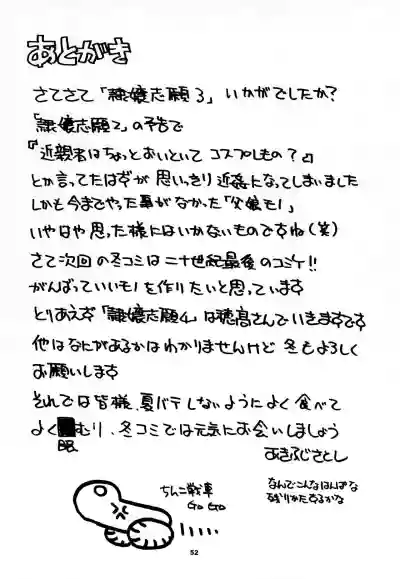 あとがき
さてさて「隷嬢志願3」いかがでしたか?
「隷嬢志願2」の予告で
『近親者はちょっとおいといて コスプレもの?』
とか言ってたはずが思いっきり近姦になってしまいました
しかも今までやった事がなかった「父娘モノ」
いやはや思った様にはいかないものですね(笑)
さて次回の冬コミは二十世紀最後のコミケ!!
がんばっていいモノを作りたいと思っています
とりあえず「隷嬢志願4」は穂高さんでいきますです
他はなにがあるかはわかりませんけど 冬もよろしく
お願いします
それでは皆様、夏バテしないようによく食べて
よくむり、冬コミでは元気にお会いしましょう
眠
あきふじさとし
ちんこ戦車
GO GO
なんでこんなはんぱな
残りかたするかな
52